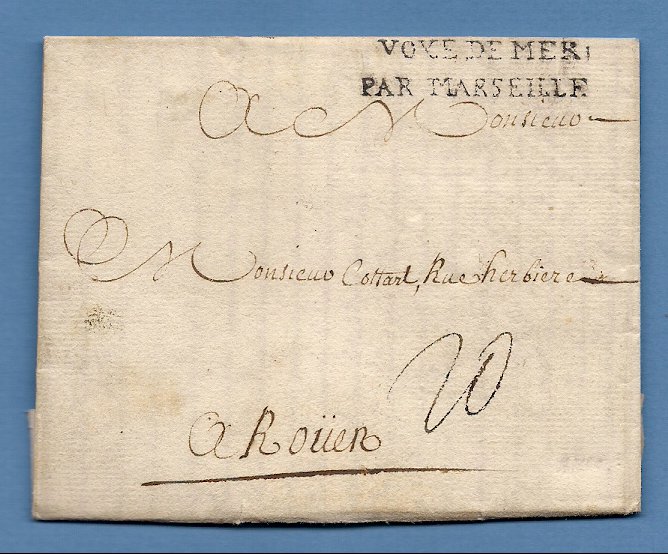 VOYE DE MER
PAR MARSEILLE
A Monsieur
Monsieur Cottart, Rue herbiere
20
A Roüen